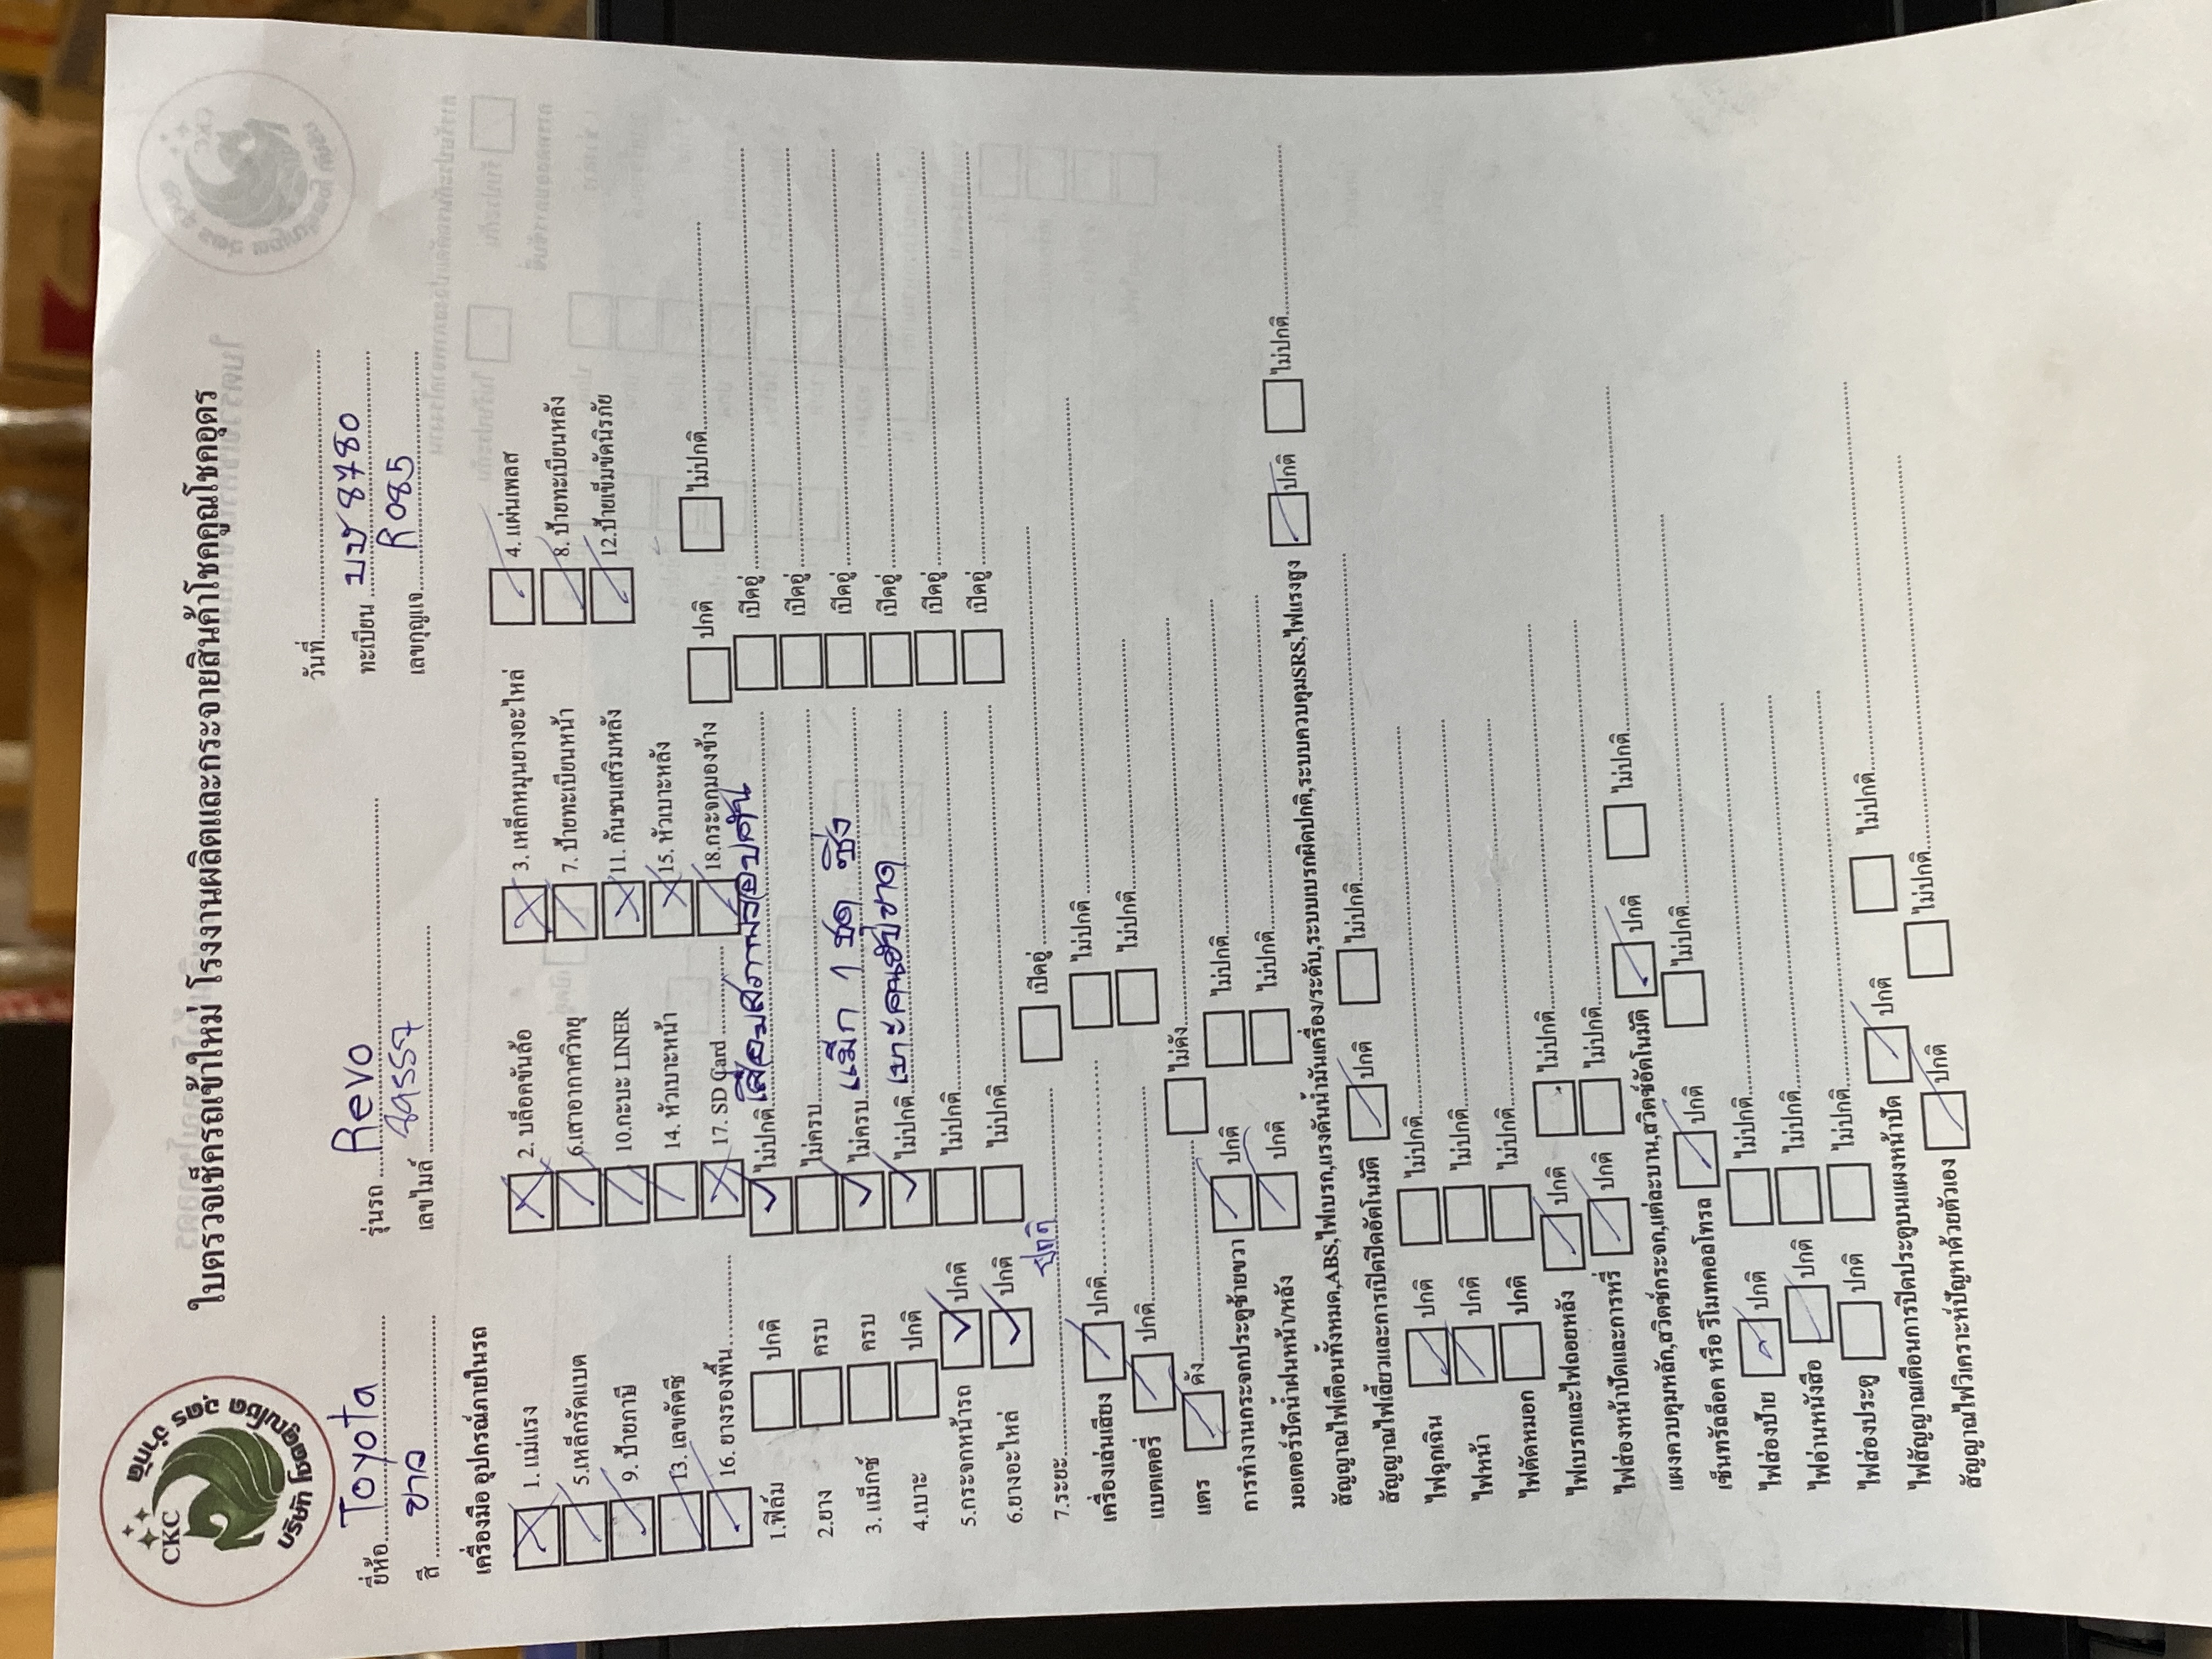 CKC
บริษัท โชคคูณโชค อุดร จำกัด
ใบตรวจเช็ครถเข้าใหม่ โรงงานผลิตและกระจายสินค้าโชคคูณโชคอุดร
วันที่
ยี่ห้อ Toyota รุ่นรถ Revo ทะเบียน บบช 8780
สี ขาว เลขไมล์ เลขกุญแจ R085
เครื่องมือ อุปกรณ์ภายในรถ
1. แม่แรง 2. บล็อคขันล้อ 3. เหล็กหมุนยางอะไหล่ 4. แผ่นเพลส
5.เหล็กรัดแบต 6.เสาอากาศวิทยุ 7. ป้ายทะเบียนหน้า 8. ป้ายทะเบียนหลัง
9. ป้ายภาษี 10.กะบะ LINER 11. กันชนเสริมหลัง 12.ป้ายเข็มขัดนิรภัย
13. เลขคัตซี 14. หัวเบาะหน้า 15. หัวเบาะหลัง
16. ยางรองพื้น 17. SD Card 18.กระจกมองข้าง ปกติ ไม่ปกติ
1.ฟิล์ม ปกติ ไม่ปกติ เสื่อมสภาพรอบคัน เปิดอู่
2.ยาง ครบ ไม่ครบ เปิดอู่
3. แม็กซ์ ครบ ไม่ครบ แม็ก 1 ชุด ซิ่ง เปิดอู่
4.เบาะ ปกติ ไม่ปกติ เบาะคนขับขาด เปิดอู่
5.กระจกหน้ารถ ปกติ ไม่ปกติ เปิดอู่
6.ยางอะไหล่ ปกติ ไม่ปกติ เปิดอู่
7.ระยะ ปกติ เปิดอู่
เครื่องเล่นเสียง ปกติ ไม่ปกติ
แบตเตอรี่ ปกติ ไม่ปกติ
แตร ดัง ไม่ดัง
การทำงานกระจกประตูซ้ายขวา ปกติ ไม่ปกติ
มอเตอร์ปัดน้ำฝนหน้า/หลัง ปกติ ไม่ปกติ
สัญญาณไฟเตือนทั้งหมด,ABS,ไฟเบรก,แรงดันน้ำมันเครื่อง/ระดับ,ระบบเบรกผิดปกติ,ระบบควบคุมSRS,ไฟแรงสูง ปกติ ไม่ปกติ
สัญญาณไฟเลี้ยวและการเปิดปิดอัตโนมัติ ปกติ ไม่ปกติ
ไฟฉุกเฉิน ปกติ ไม่ปกติ
ไฟหน้า ปกติ ไม่ปกติ
ไฟตัดหมอก ปกติ ไม่ปกติ
ไฟเบรกและไฟถอยหลัง ปกติ ไม่ปกติ
ไฟส่องหน้าปัดและการหรี่ ปกติ ไม่ปกติ
แผงควบคุมหลัก,สวิตช์กระจก,แต่ละบาน,สวิตช์อัตโนมัติ ปกติ ไม่ปกติ
เซ็นทรัลล็อค หรือ รีโมทคอลโทรล ปกติ ไม่ปกติ
ไฟส่องป้าย ปกติ ไม่ปกติ
ไฟอ่านหนังสือ ปกติ ไม่ปกติ
ไฟส่องประตู ปกติ ไม่ปกติ
ไฟสัญญาณเตือนการปิดประตูบนแผงหน้าปัด ปกติ ไม่ปกติ
สัญญาณไฟวิเคราะห์ปัญหาด้วยตัวเอง ปกติ ไม่ปกติ